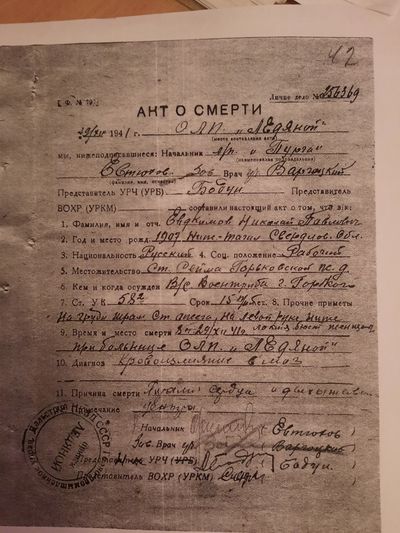 42
Ф. № 19
Личное дело № 256369
АКТ О СМЕРТИ
29/XII 1941 г. ОЛП "Ледяной"
(место составления акта)
мы, нижеподписавшиеся: Начальник л/п "Пурга"
(наименование подразделения)
Евтюхов Зав. Врач Варгоцкий
(фамилия, имя, отчество)
Представитель УРЧ (УРБ) Бабун Представитель
ВОХР (УРКМ) составили настоящий акт о том, что з|к:
1. Фамилия, имя и отч. Евдокимов Николай Павлович
2. Год и место рожд. 1907 Ниж-Тагил Свердлов. Обл.
3. Национальность Русский 4. Соц. положение Рабочий
5. Местожительство Ст. Сейма Горьковской ж.д.
6. Кем и когда осужден В/С Военриба г. Горького
7. Ст. УК 58² Срок 15 лет. 8. Прочие приметы
На груди шрам на левой руке ниже
9. Время и место смерти 29/XII 41г. бюст женщины
при больнице ОЛП "Ледяной"
10. Диагноз Кровоизлияние в мозг
11. Причина смерти Паралич сердца и дыхательн.
Примечание центра
Начальник Евтюхов
Зав. Врач Варгоцкий
Представитель УРЧ (УРБ) Бабун
Представитель ВОХР (УРКМ)
ЛЕДЯНОЙ
СССР